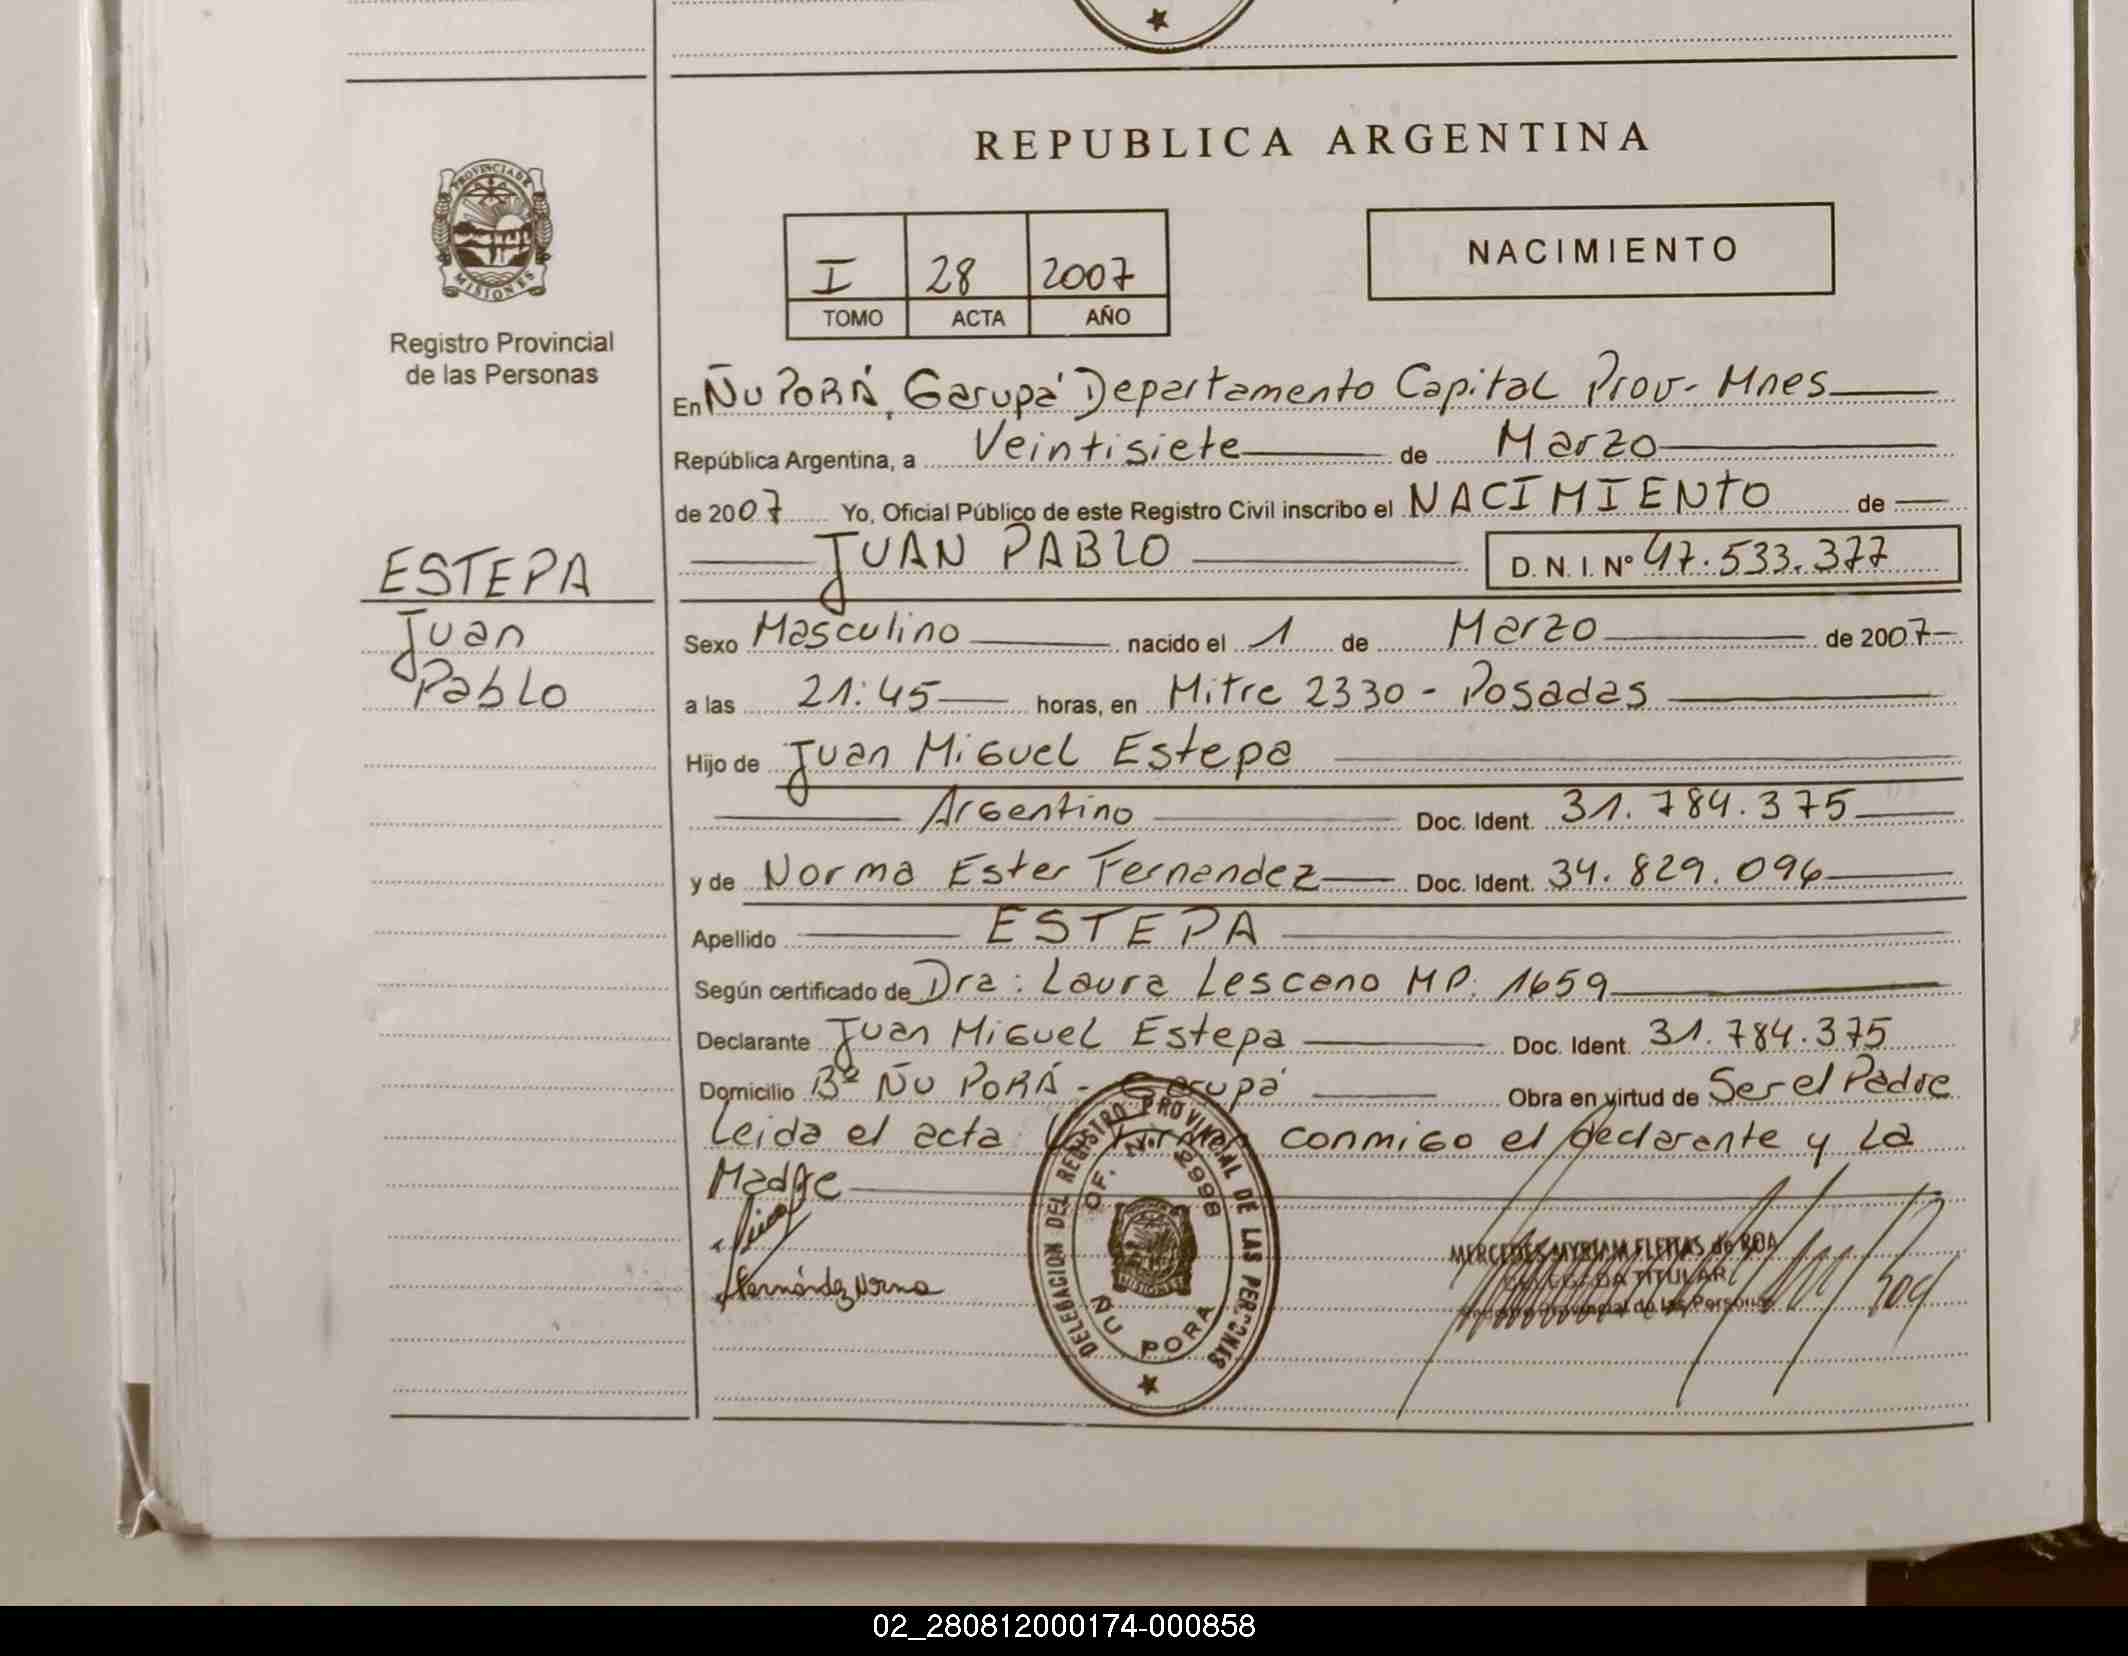 REPUBLICA ARGENTINA
PROVINCIA DE
MISIONES
Registro Provincial
de las Personas
I 28 2007
TOMO ACTA AÑO
NACIMIENTO
En Ñu PORÁ, Garupá Departamento Capital Prov- Mnes
República Argentina, a Veintisiete de Marzo
de 2007 Yo, Oficial Público de este Registro Civil inscribo el NACIMIENTO de
JUAN PABLO D. N. I. Nº 47.533.377
ESTEPA
Juan
Pablo
Sexo Masculino nacido el 1 de Marzo de 2007
a las 21:45 horas, en Mitre 2330 - Posadas
Hijo de Juan Miguel Estepa
Argentino Doc. Ident. 31.784.375
y de Norma Ester Fernandez Doc. Ident. 34.829.096
Apellido ESTEPA
Según certificado de Dra: Laura Lescano MP. 1659
Declarante Juan Miguel Estepa Doc. Ident. 31.784.375
Domicilio Bº Ñu PORÁ - Garupá Obra en virtud de Ser el Padre
Leida el acta firman conmigo el declarante y la
Madre
Fernández Norma
DELEGACION DEL REGISTRO PROVINCIAL DE LAS PERSONAS
OF. 2998
MISIONES
ÑU PORA
MERCEDES MYRIAM FLEITAS de ROA
DELEGADA TITULAR
Registro Provincial de las Personas
02_280812000174-000858